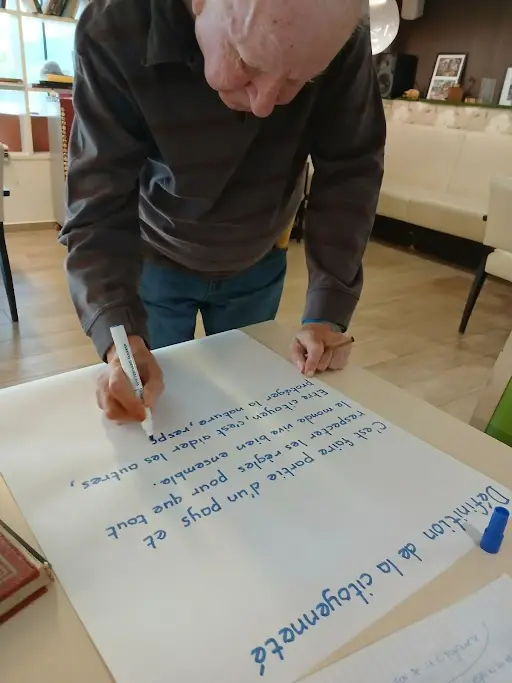 Définition de la citoyenneté
C'est faire partie d'un pays et
respecter les règles pour que tout
le monde vive bien ensemble.
Etre citoyen, c'est aider les autres,
protéger la nature, resps